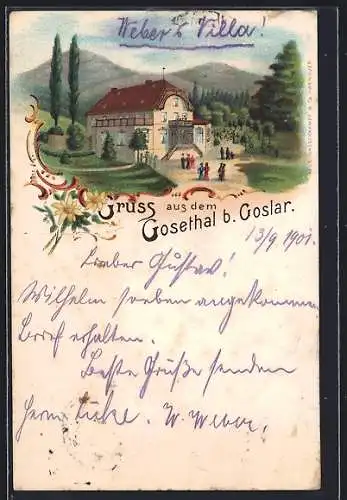 Weber's Villa!
Gruss aus dem
Gosethal b. Goslar.
13/9 1901.
Lieber Gustav!
Wilhelm soeben angekommen
Brief erhalten.
Beste Grüße senden
W. Weber.